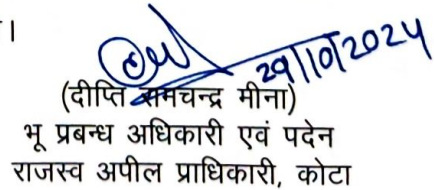 ।
29/10/2024
(दीप्ति रामचन्द्र मीना)
भू प्रबन्ध अधिकारी एवं पदेन
राजस्व अपील प्राधिकारी, कोटा